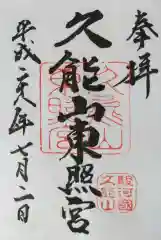 奉拝
久能山東照宮
平成二十八年七月二日
駿河國
久能山